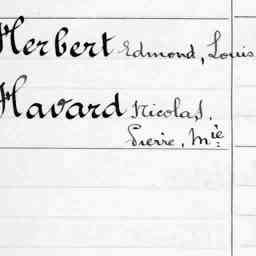 Herbert Edmond, Louis
Havard Nicolas,
Pierre, Mie